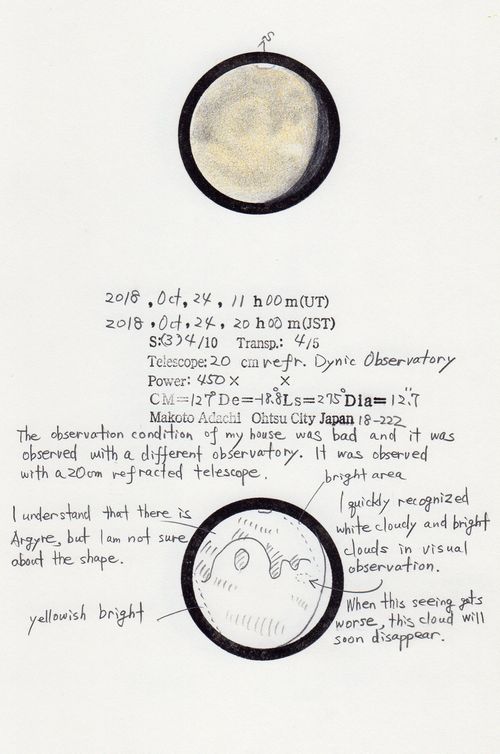 S
2018, Oct, 24, 11 h00 m(UT)
2018, Oct, 24, 20 h00 m(JST)
S:(3)4/10 Transp.: 4/5
Telescope: 20 cm refr. Dynic Observatory
Power: 450 × ×
CM=127° De=-18.8° Ls=275° Dia=12".7
Makoto Adachi Ohtsu City Japan 18-222
The observation condition of my house was bad and it was
observed with a different observatory. It was observed
with a 20cm refracted telescope.
bright area
I understand that there is
Argyre, but I am not sure
about the shape.
I quickly recognized
white cloudy and bright
clouds in visual
observation.
yellowish bright
When this seeing gets
worse, this cloud will
soon disappear.